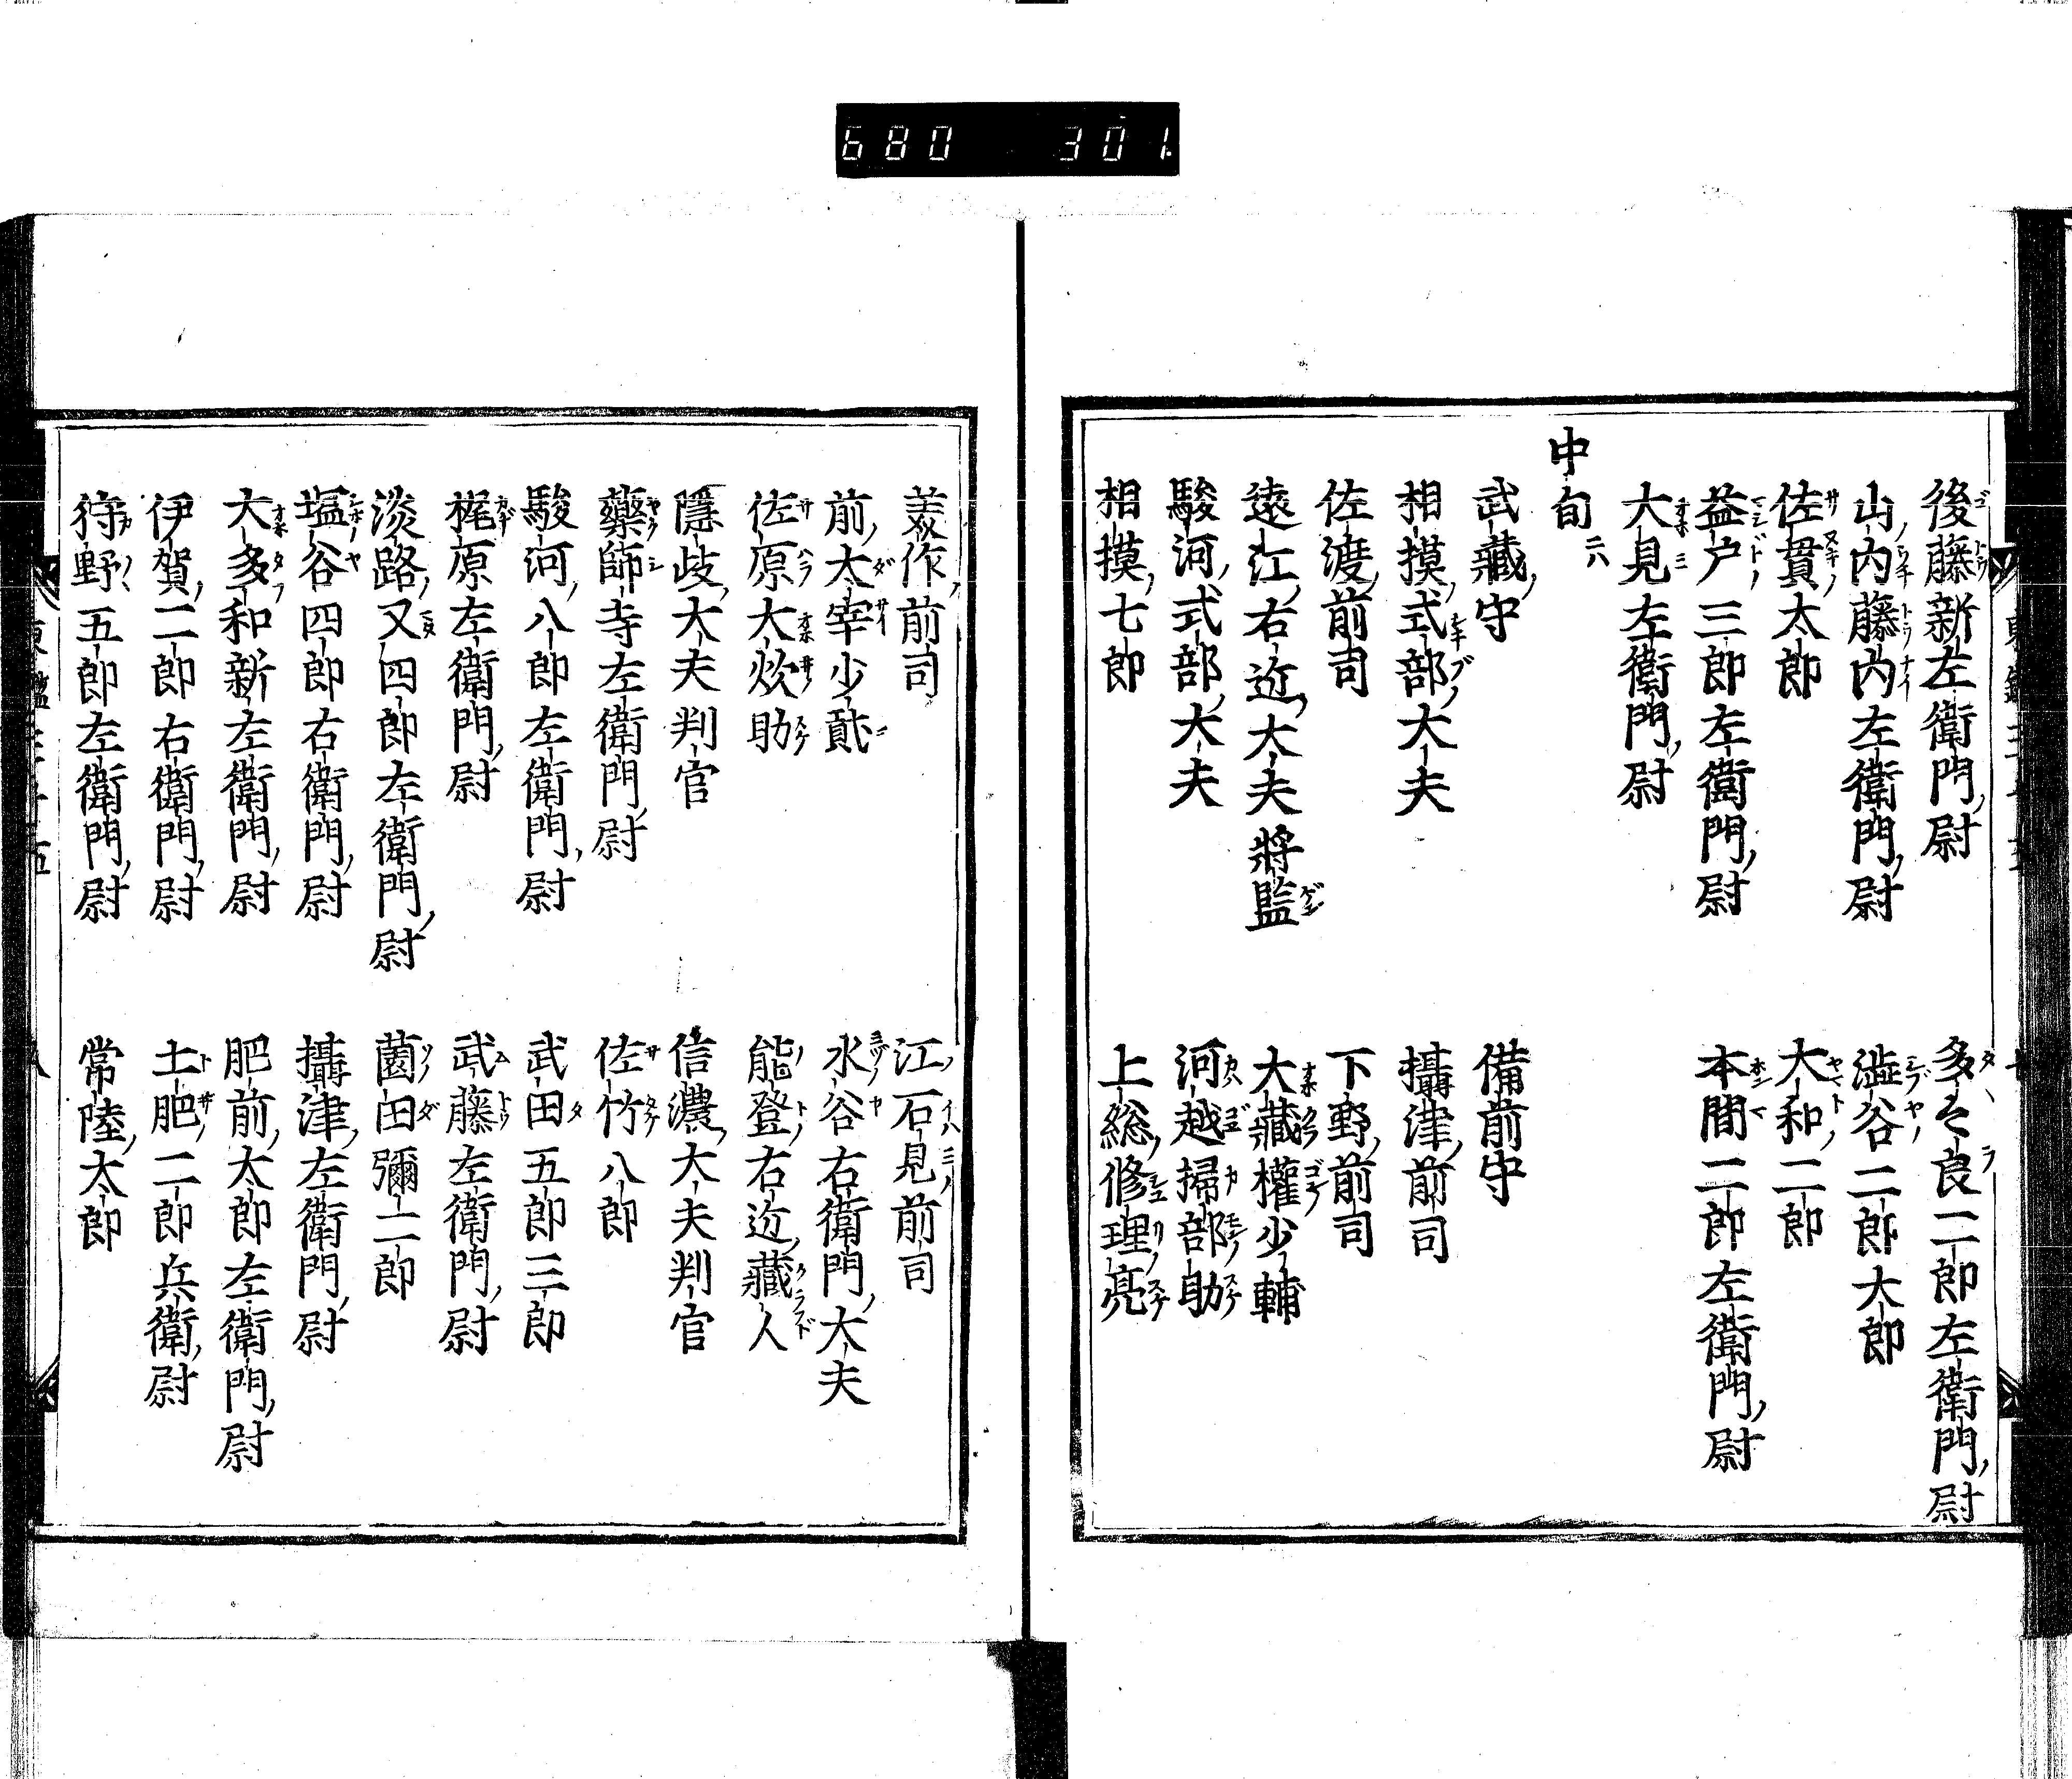 680 301
後藤新左衛門尉 多々良二郎左衛門尉
山内藤内左衛門尉 澁谷二郎太郎
佐貫太郎 大和二郎
益戸三郎左衛門尉 本間二郎左衛門尉
大見左衛門尉
中旬
武藏守 備前守
相摸式部大夫 攝津前司
佐渡前司 下野前司
遠江右近大夫將監 大藏權少輔
駿河式部大夫 河越掃部助
相摸七郎 上総修理亮
美作前司 江石見前司
前太宰少貳 水谷右衛門大夫
佐原大炊助 能登右近藏人
隱歧大夫判官 信濃大夫判官
藥師寺左衛門尉 佐竹八郎
駿河八郎左衛門尉 武田五郎三郎
梶原左衛門尉 武藤左衛門尉
淡路又四郎左衛門尉 薗田彌二郎
塩谷四郎右衛門尉 攝津左衛門尉
大多和新左衛門尉 肥前太郎左衛門尉
伊賀二郎右衛門尉 土肥二郎兵衛尉
狩野五郎左衛門尉 常陸太郎